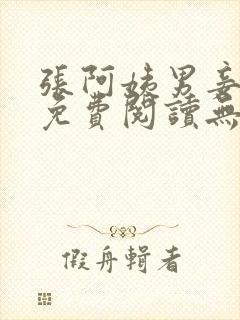 張阿姨男妾
免費閱讀無
假舟輯者